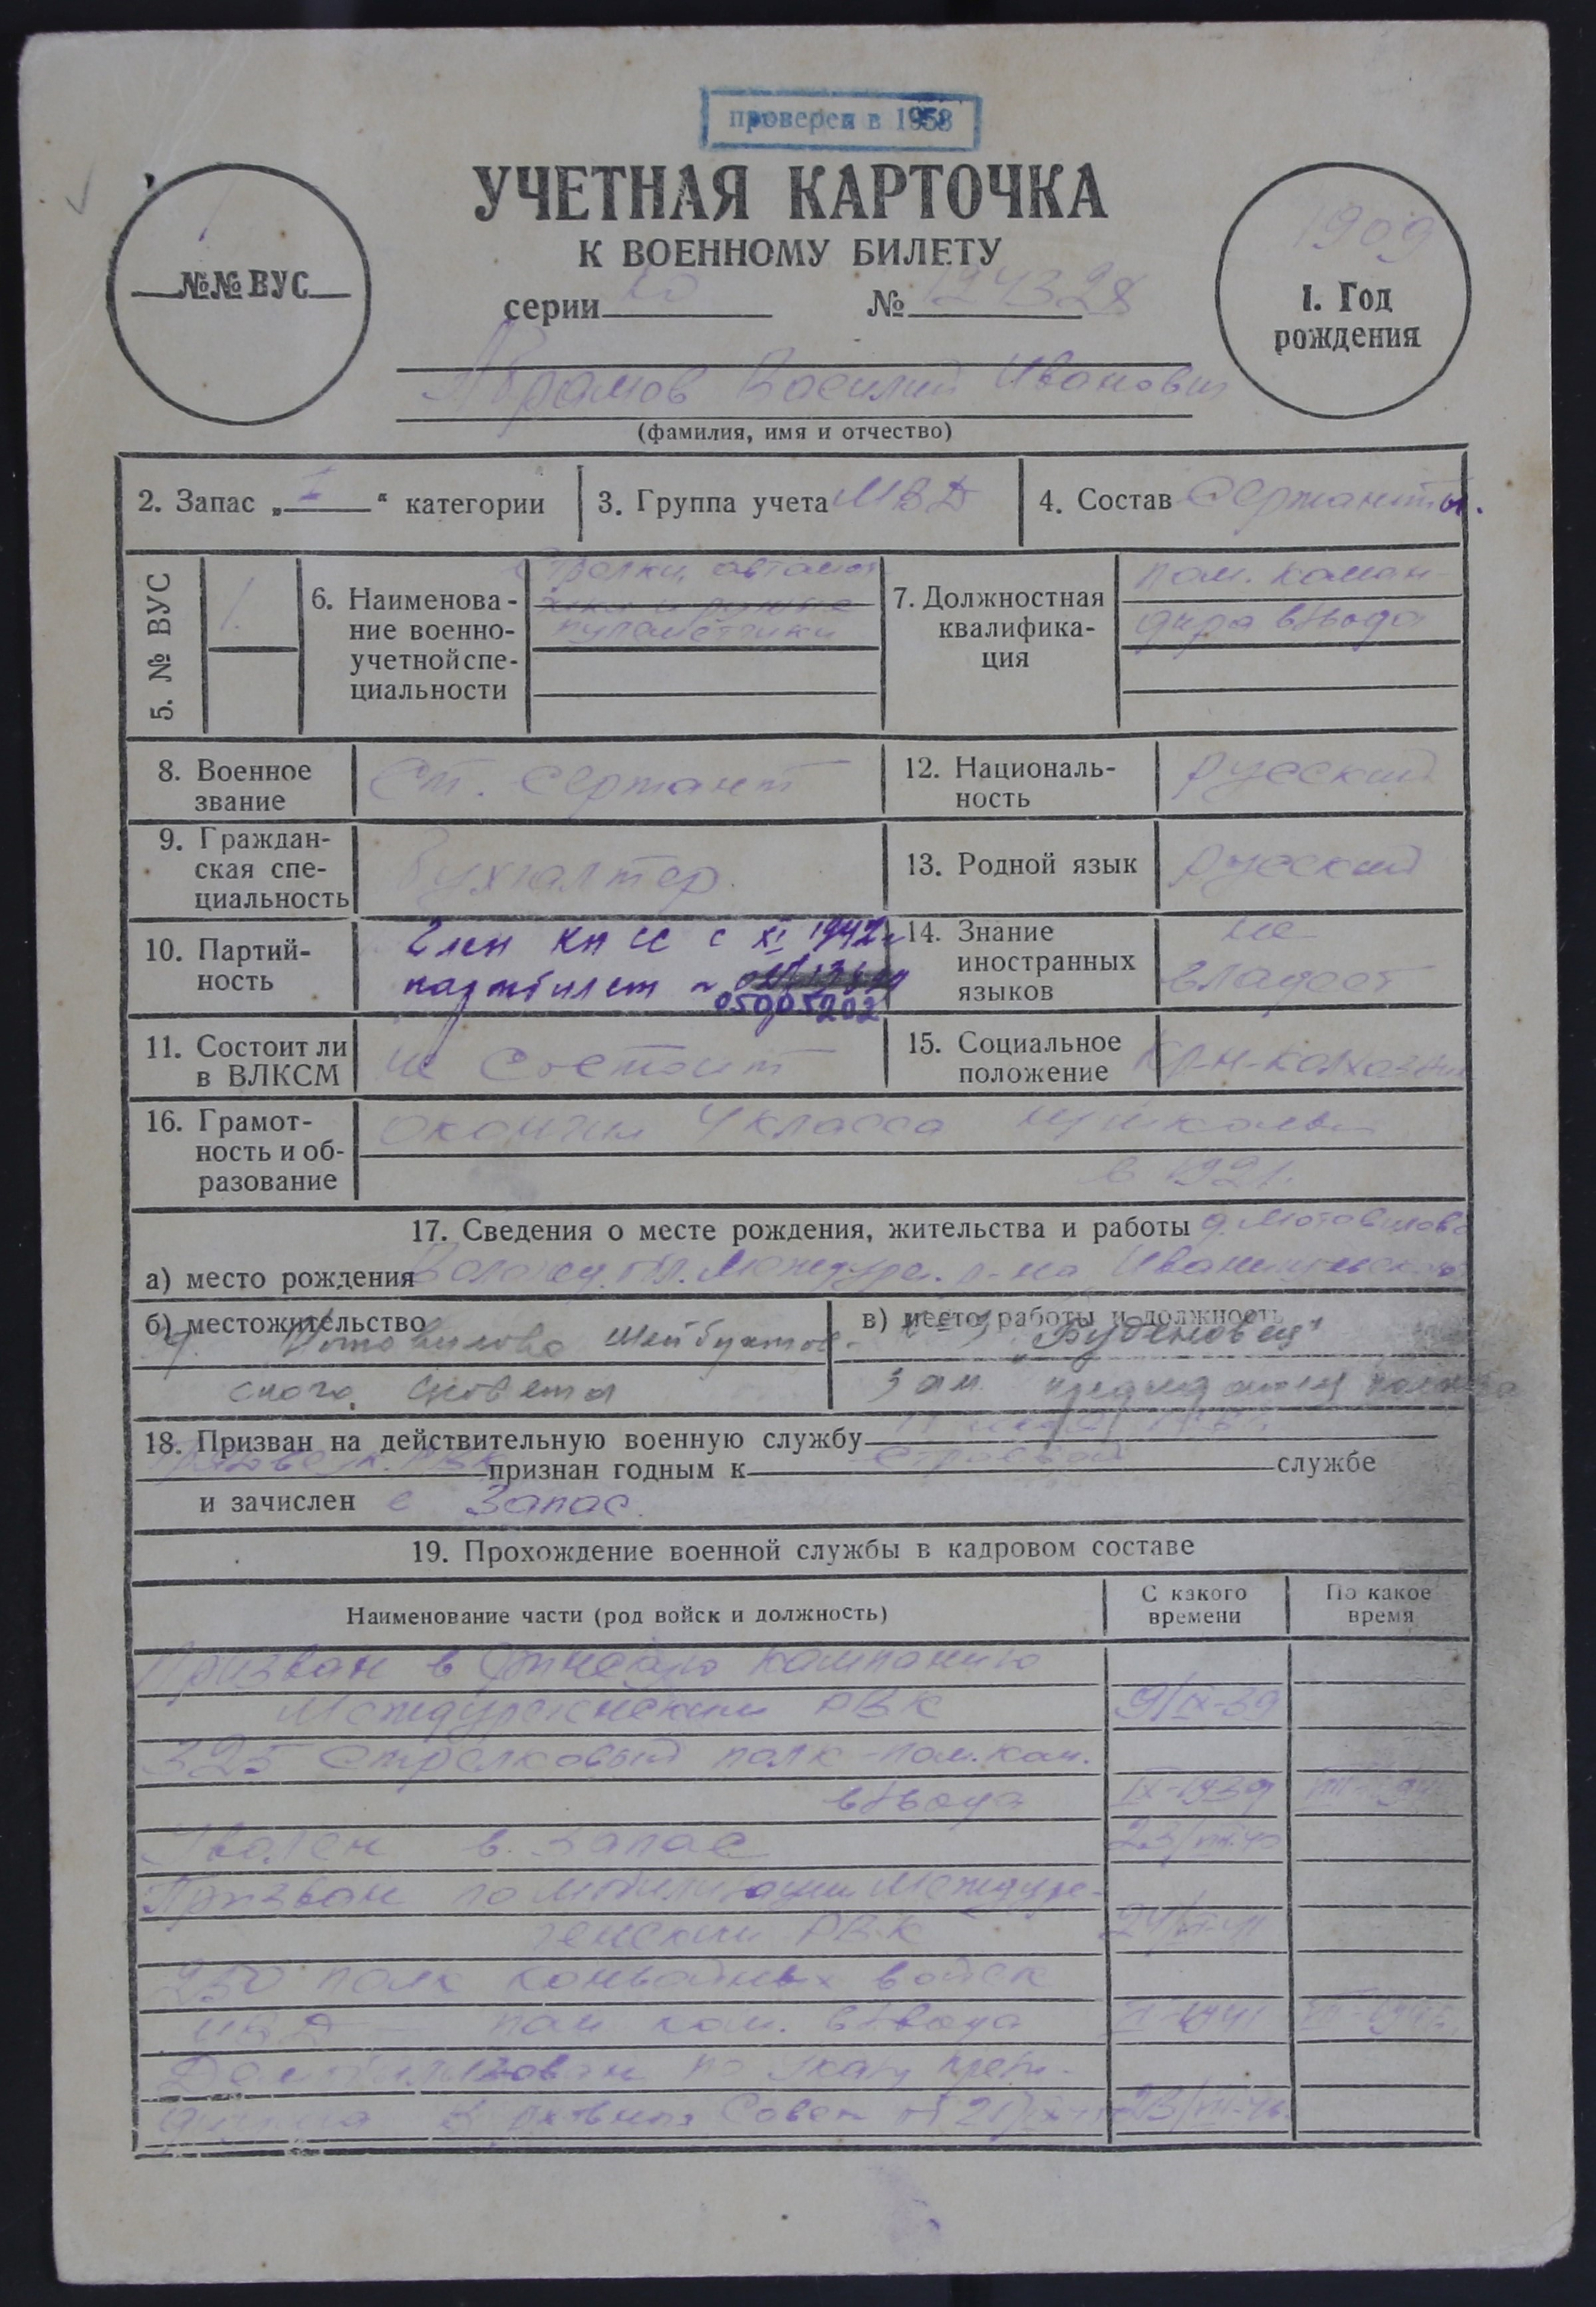 проверен в 1958
УЧЕТНАЯ КАРТОЧКА
К ВОЕННОМУ БИЛЕТУ
серии № 124328
№№ ВУС
1909
1. Год рождения
Абрамов Василий Иванович
(фамилия, имя и отчество)
2. Запас „ I “ категории
3. Группа учета МВД
4. Состав Сержанты.
5. № ВУС 1.
6. Наименование военно-учетной специальности
Стрелки, автомат
пулеметчики
7. Должностная квалификация
пом. коман-
дира взвода
8. Военное звание Ст. сержант
12. Национальность русский
9. Гражданская специальность Бухгалтер.
13. Родной язык русский
10. Партийность Член КПСС с XI 1942 г
партбилет № 05005202
14. Знание иностранных языков не владеет
11. Состоит ли в ВЛКСМ не состоит
15. Социальное положение кр-н-колхозник
16. Грамотность и образование окончил 4 класса школы
в 1921.
17. Сведения о месте рождения, жительства и работы д. Мотовилово
а) место рождения Вологод. обл. Междуре. р-на
б) местожительство
д. Мотовилово Шейбухтов-
ского совета
в) место работы и должность
„Буденовец“
зам. председателя колхоза
18. Призван на действительную военную службу
РВК признан годным к строевой службе
и зачислен в запас.
19. Прохождение военной службы в кадровом составе
Наименование части (род войск и должность)
С какого времени
По какое время
Призван в Финскую кампанию
Междуреченским РВК 9/IX-39
325 стрелковый полк - пом. ком.
взвода IX-1939
Уволен в запас
Призван по мобилизации Междуре-
ченским РВК
250 полк конвойных войск
МВД - пом ком. взвода
Демобилизован по указу прези-
диума Верховного Совета